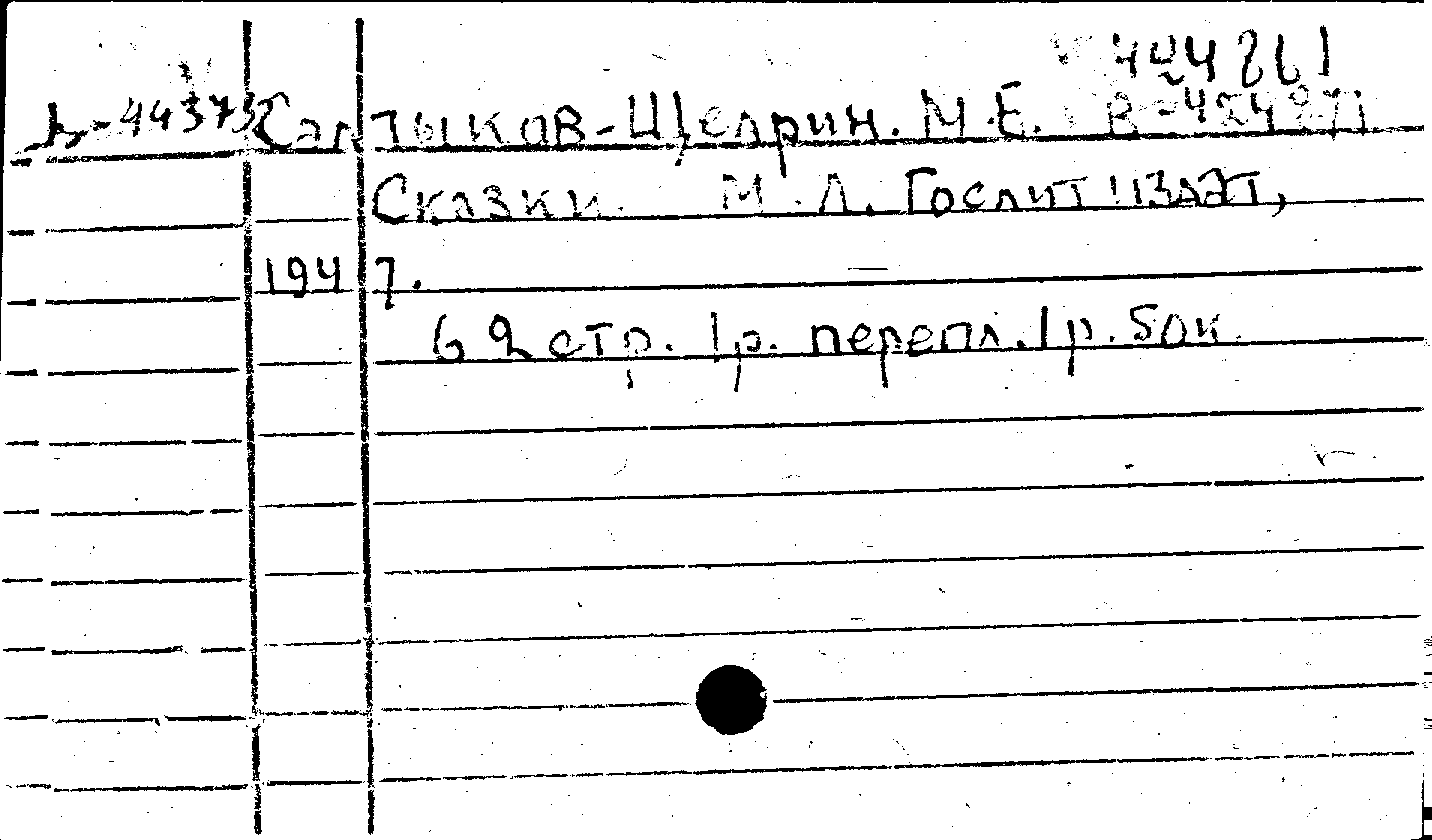 424861
в-44373 Салтыков-Щедрин. М.Е. В-424871
Сказки. М.Л. Гослитиздат,
1947.
62 стр. 1р. перепл. 1р. 50к.